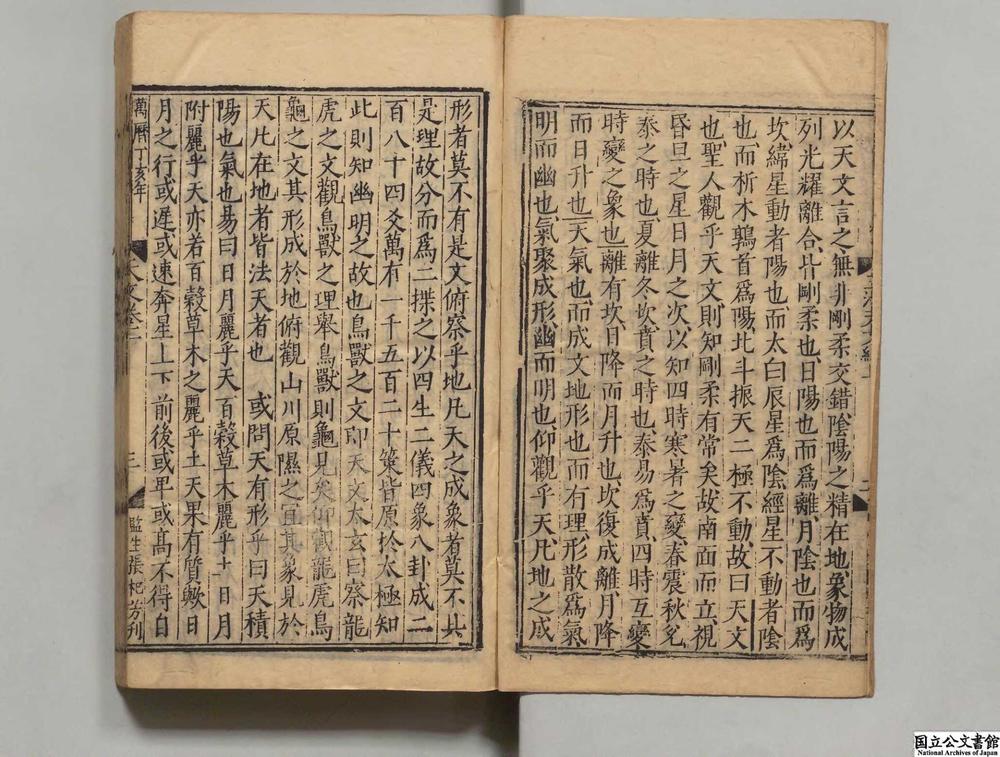 以天文言之無非剛柔交錯陰陽之精在地象物成
列光耀離合皆剛柔也日陽也而爲離月陰也而爲
坎緯星動者陽也而太白辰星爲陰經星不動者陰
也而析木鶉首爲陽北斗振天二極不動故曰天文
也聖人觀乎天文則知剛柔有常矣故南面而立視
昏旦之星日月之次以知四時寒暑之變春震秋兌
泰之時也夏離冬坎賁之時也泰易爲賁四時互變
時變之象也離有坎日降而月升也坎復成離月降
而日升也天氣也而成文地形也而有理形散爲氣
明而幽也氣聚成形幽而明也仰觀乎天凡地之成
形者莫不有是文俯察乎地凡天之成象者莫不具
是理故分而爲二揲之以四生二儀四象八卦成二
百八十四爻萬有一千五百二十策皆原於太極知
此則知幽明之故也鳥獸之文印天文太玄曰察龍
虎之文觀鳥獸之理舉鳥獸則龜見矣仰觀龍虎鳥
龜之文其形成於地俯觀山川原隰之宜其象見於
天凡在地者皆法天者也 或問天有形乎曰天積
陽也氣也易曰日月麗乎天百穀草木麗乎土日月
附麗乎天亦若百穀草木之麗乎土天果有質歟日
月之行或遲或速奔星上下前後或卑或高不得自
萬曆丁亥年
三
監生張杞芳刊
国立公文書館
National Archives of Japan